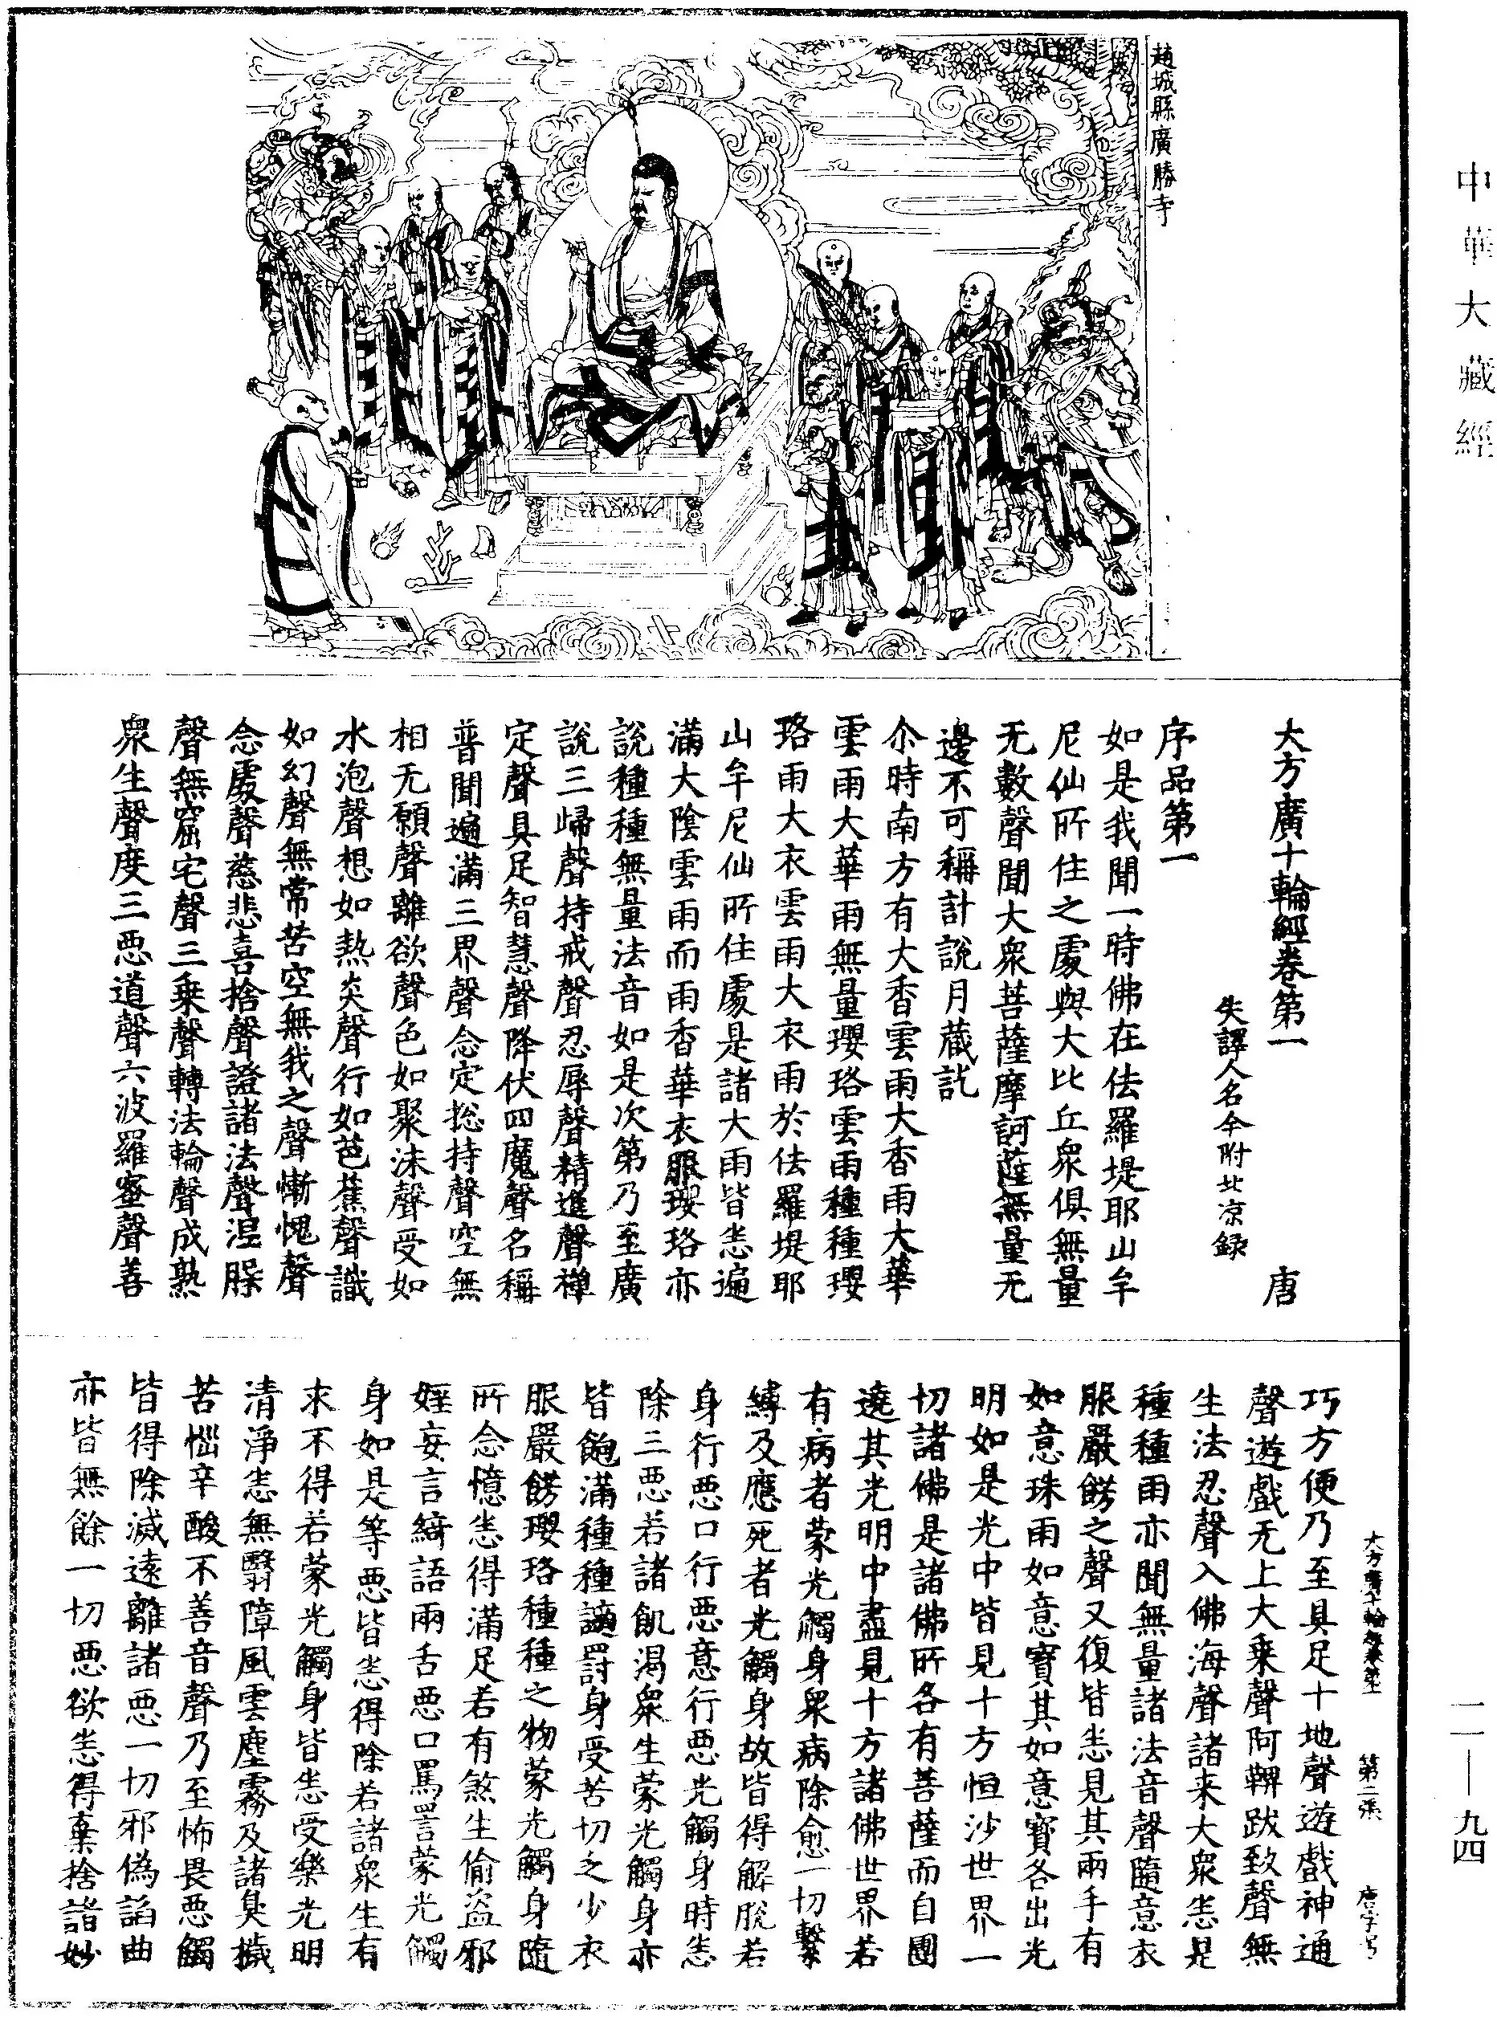 中華大藏經
趙城縣廣勝寺
大方廣十輪經卷第一　唐
失譯人名今附北涼録
序品第一
如是我聞一時佛在佉羅堤耶山牟
尼仙所住之處與大比丘衆俱無量
无數聲聞大衆菩薩摩訶薩無量无
邊不可稱計說月藏訖
尒時南方有大香雲雨大香雨大華
雲雨大華雨無量瓔珞雲雨種種瓔
珞雨大衣雲雨大衣雨於佉羅堤耶
山牟尼仙所住處是諸大雨皆悉遍
滿大陰雲雨而雨香華衣服瓔珞亦
說種種無量法音如是次第乃至廣
說三歸聲持戒聲忍辱聲精進聲禅
定聲具足智慧聲降伏四魔聲名稱
普聞遍滿三界聲念定捴持聲空無
相无願聲離欲聲色如聚沫聲受如
水泡聲想如熱炎聲行如芭蕉聲識
如幻聲無常苦空無我之聲慚愧聲
念處聲慈悲喜捨聲證諸法聲涅槃
聲無窟宅聲三乗聲轉法輪聲成熟
衆生聲度三惡道聲六波羅蜜聲善
巧方便乃至具足十地聲遊戲神通
聲遊戲无上大乗聲阿鞞跋致聲無
生法忍聲入佛海聲諸来大衆悉是
種種雨亦聞無量諸法音聲隨意衣
服嚴餝之聲又復皆悉見其兩手有
如意珠雨如意寶其如意寶各出光
明如是光中皆見十方恒沙世界一
切諸佛是諸佛所各有菩薩而自圍
遶其光明中盡見十方諸佛世界若
有病者蒙光觸身衆病除愈一切繫
縛及應死者光觸身故皆得解脫若
身行惡口行惡意行惡光觸身時悉
除三惡若諸飢渴衆生蒙光觸身亦
皆飽滿種種讁罸身受苦切之少衣
服嚴餝瓔珞種種之物蒙光觸身隨
所念憶悉得滿足若有煞生偷盜邪
婬妄言綺語兩舌惡口罵詈蒙光觸
身如是等惡皆悉得除若諸衆生有
求不得若蒙光觸身皆悉受樂光明
清淨悉無翳障風雲塵霧及諸臭穢
苦惱辛酸不善音聲乃至怖畏惡觸
皆得除滅遠離諸惡一切邪偽諂曲
亦皆無餘一切惡欲悉得棄捨諸妙
大方廣十輪經卷第一　第二張　唐字号
一一—九四